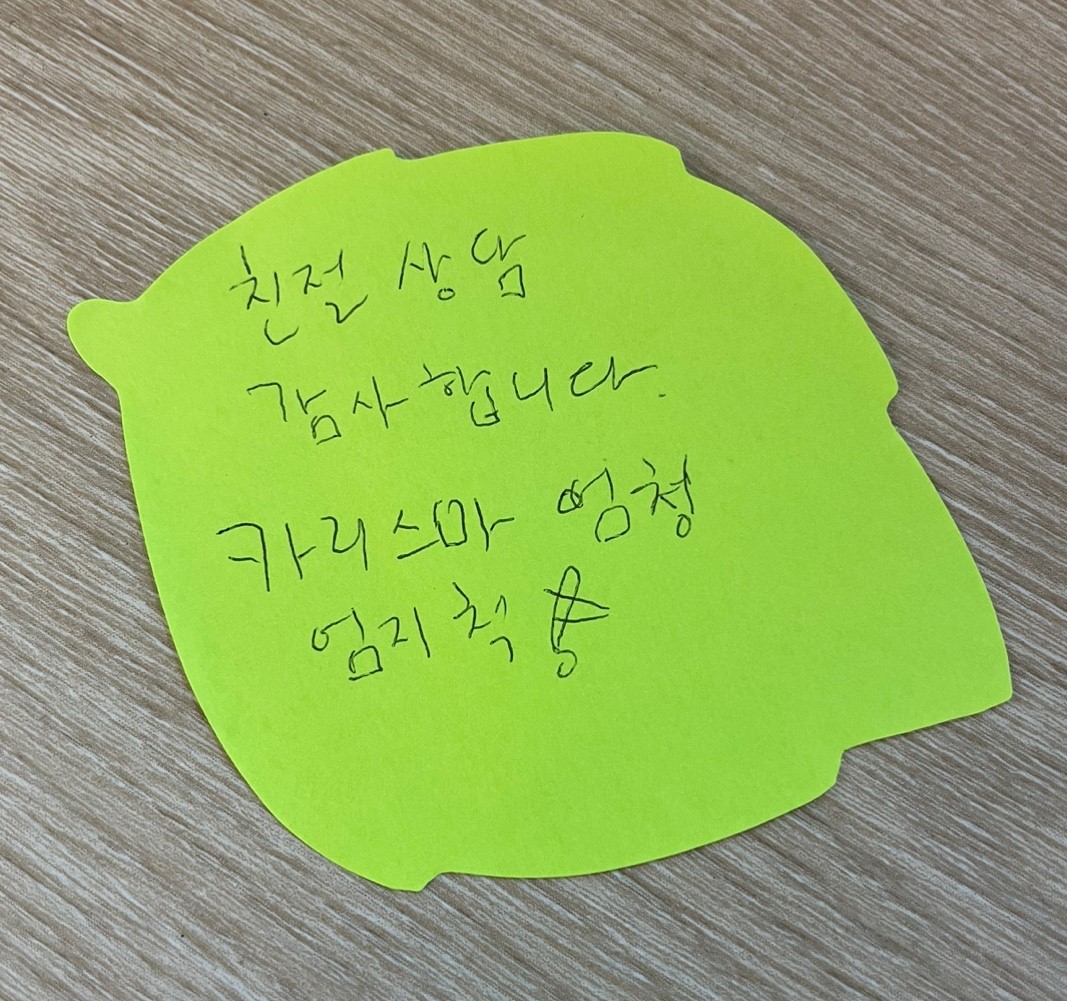 친절 상담
감사합니다.
카리스마 엄청
엄지척